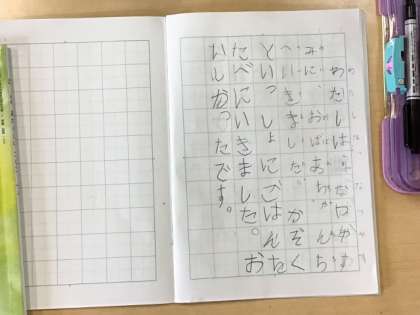 わたしは、なつやす
みに、おばあちゃんち
へいきました。かぞく
といっしょにごはんを
たべにいきました。お
いしかったです。